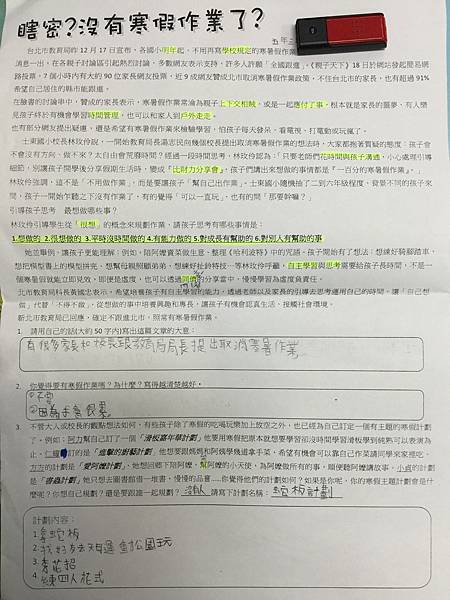 瞎密?沒有寒假作業了?
五年二
台北市教育局昨 12 月 17 日宣布，各國小明年起，不用再寫學校規定的寒暑假作業
消息一出，在各親子討論區引起熱烈討論，多數網友表示支持，許多人許願「全國跟進」。《親子天下》18 日於網站發起簡易網
路投票，7 個小時內有大約 90 位家長網友投票，近 9 成網友贊成北市取消寒暑假作業政策，不住台北市的家長，也有超過 91%
希望自己居住的縣市能跟進。
在臉書的討論串中，贊成的家長表示，寒暑假作業常淪為親子上下交相賊，或是一起應付了事，根本就是家長的噩夢，有人樂
見孩子終於有機會學習時間管理，也可以和家人到戶外走走。
也有部分網友提出疑慮，還是希望有寒暑假作業來檢驗學習，怕孩子每天發呆、看電視、打電動或玩瘋了。
士東國小校長林玫伶說，一開始教育局長湯志民向幾個校長提出取消寒暑假作業的想法時，大家都抱著質疑的態度：孩子會
不會沒有方向、做不來？太自由會荒廢時間？經過一段時間思考，林玫伶認為：「只要老師們花時間與孩子溝通，小心處理引導
細節，別讓孩子開學後分享假期生活時，變成『比財力分享會』，孩子們講出來想做的事情都是『一百分的寒暑假作業』。」
林玫伶強調，這不是「不用做作業」，而是要讓孩子「幫自己出作業」。士東國小隨機抽了二到六年級程度，背景不同的孩子來
問，孩子一開始乍聽之下沒有作業了，有的覺得「可以一直玩」，也有的問「那要幹嘛？」
引導孩子思考　最想做哪些事？
林玫伶引導學生從「很想」的概念來規劃作業，請孩子思考有哪些事情是：
1.想做的 2.很想做的 3.平時沒時間做的 4.有能力做的 5.對成長有幫助的 6.對別人有幫助的
她並舉例，讓孩子更能理解：例如，陪阿嬤賣菜做生意、整理《哈利波特》中的咒語。孩子開始有了想法：想練好騎腳踏車、
想把模型書上的模型拼完、想幫母親照顧弟弟、想練好扯鈴特技…等林玫伶呼籲，自主學習與思考需要給孩子長時間，不是一
個寒暑假就能立即見效，即便是溫度，也可以透過同儕的分享當中，慢慢學習為虛度負責任。
北市教育局科長黃喻志表示，希望培養孩子有自主學習的能力，透過老師以及家長的引導去思考運用自己的時間，讓「自己想
做」代替「不得不做」，從想做的事中培養興趣和專長，讓孩子有機會認真生活、接觸社會環境。
新北市教育局已回應，確定不跟進北市，照常有寒暑假作業。
1. 請用自己的話(大約 50 字內)寫出這篇文章的大意：
有很多家長和校長跟教育局局長提出取消寒暑作業
2. 你覺得要有寒假作業嗎？為什麼？寫得越清楚越好。
①不要
3. 不管大人或校長的觀點想法如何，有些孩子除了寒假的吃喝玩樂加上放空之外，也已經為自己訂定一個有主題的寒假計劃
了，例如：阿力幫自己訂了一個「滑板嘉年華計劃」他要用寒假把原本就想要學習卻沒時間學習滑板學到純熟可以表演為
止，仁鐘訂的是「進擊的廚藝計劃」他想要跟媽媽和阿姨學幾道拿手菜，希望有機會可以靠自己作菜請同學來家裡吃、
方方的計劃是「愛阿嬤計劃」，她想回鄉下陪阿嬤，幫阿嬤的小天使，為阿嬤做所有的事，順便聽阿嬤講故事，小貞的計劃
是「書蟲計劃」她只想去圖書館借一堆書，慢慢的品嘗……你覺得他們的計劃如何？如果是你呢，你的寒假主題計劃會是什
麼呢？你想自己規劃？還是要跟誰一起規劃？ 請寫下計劃名稱：蛇板計劃
計劃內容：
1. 拿蛇板
2. 找好友去
3. 耍花招
4. 練四人花式